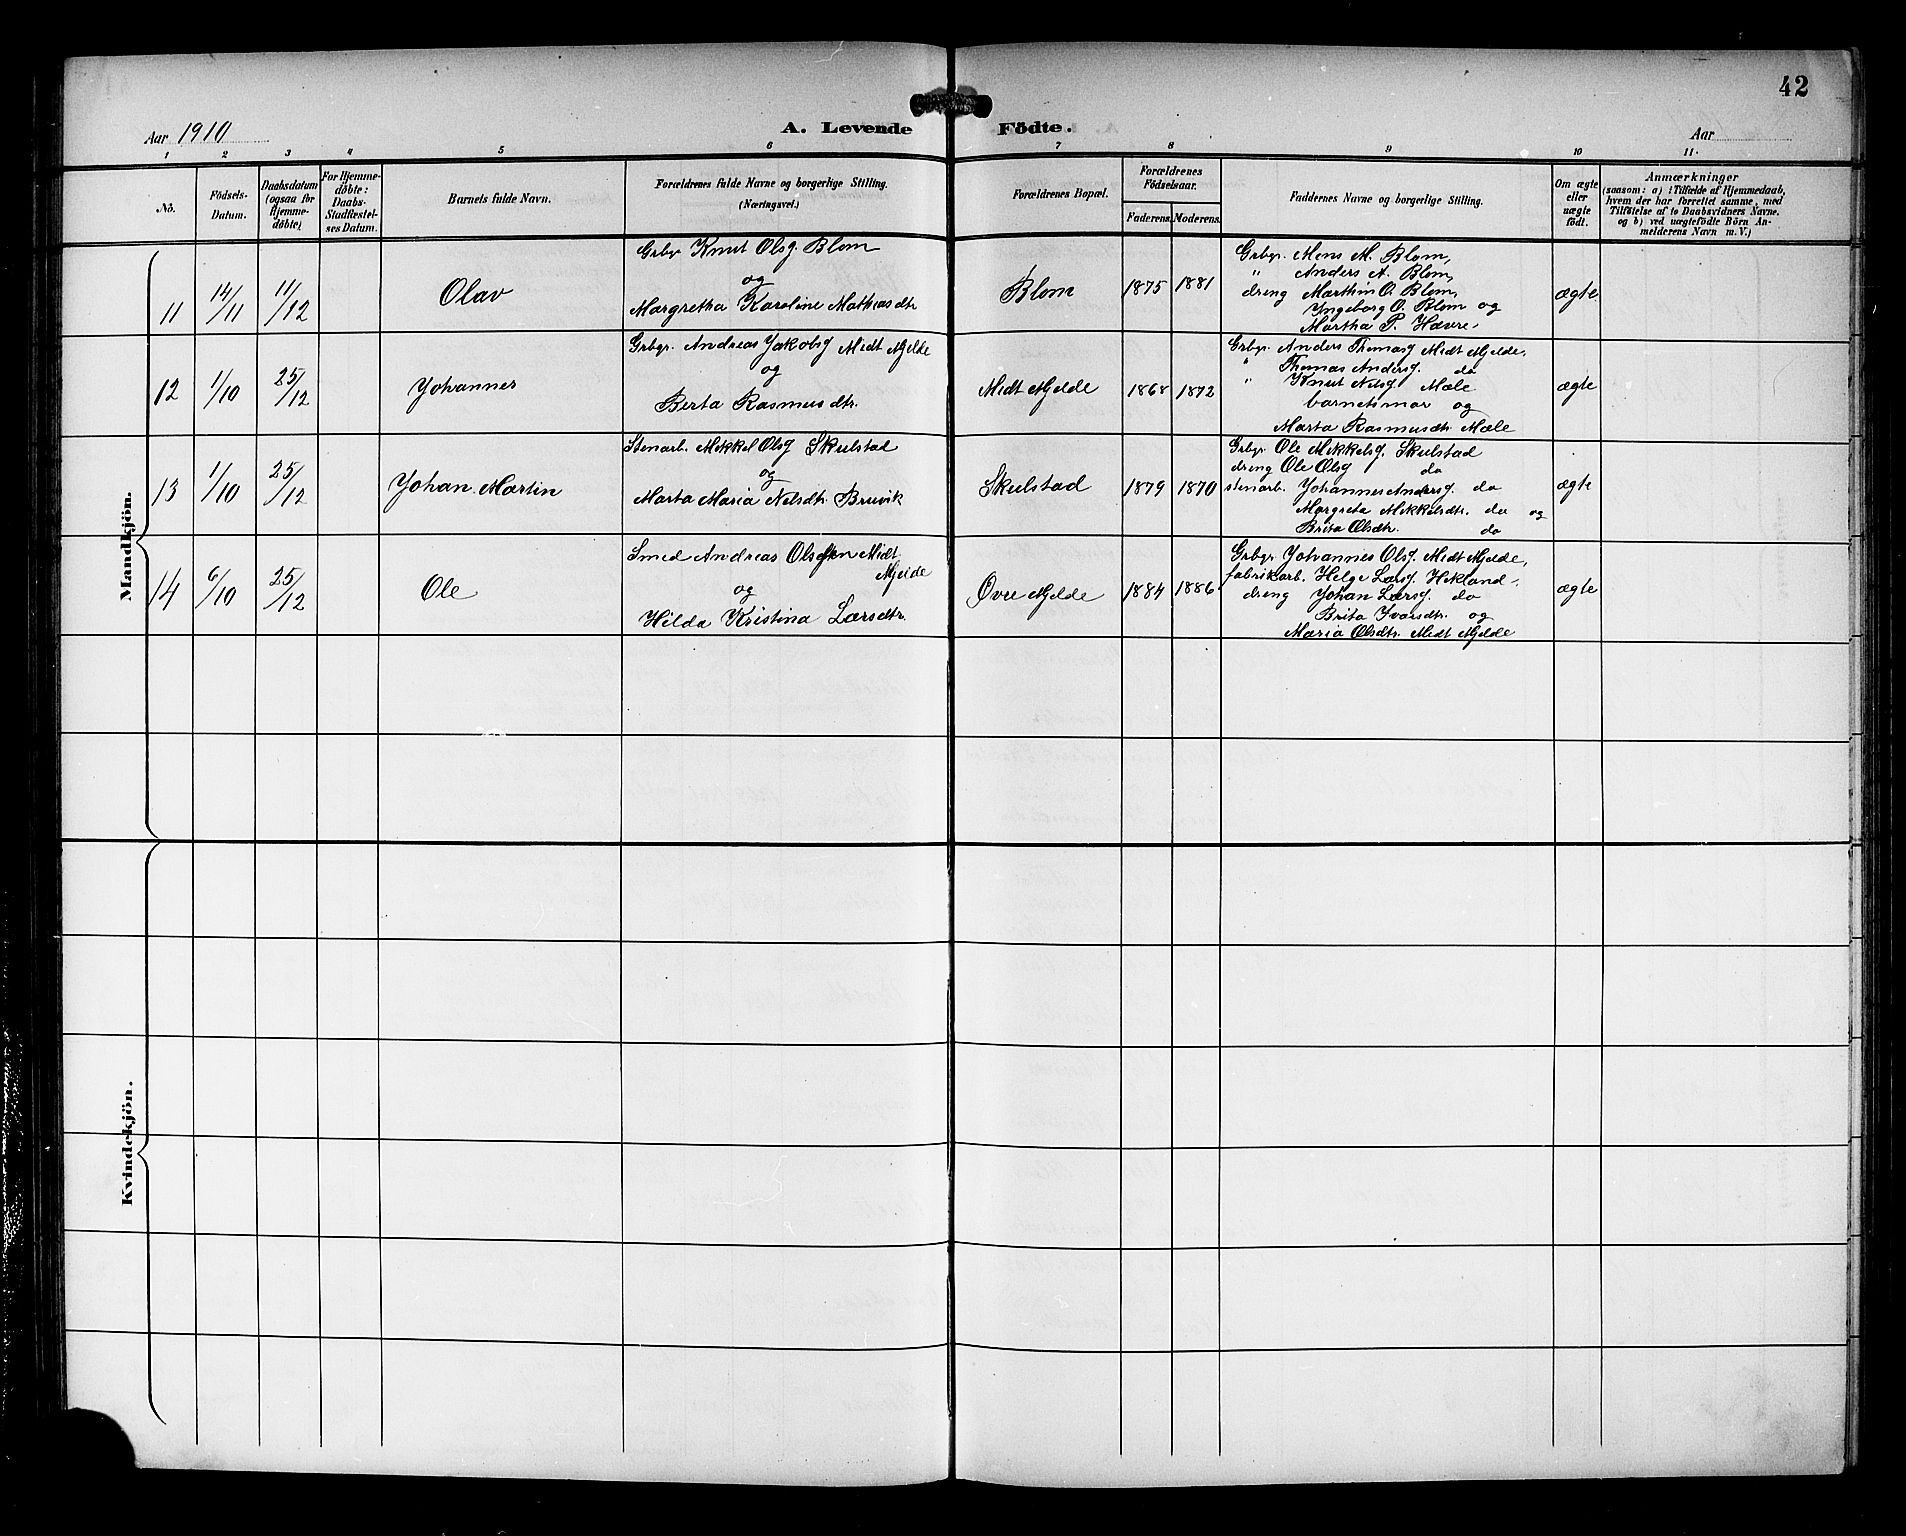 42
Aar 1910
A. Levende Födte.
Aar
1 2 3 4 5 6 7 8 9 10 11.
Nö.
Födsels-
Datum.
Daabsdatum
(ogsaa för
Hjemme-
döbte.)
For Hjemme-
döbte:
Daabs-
Stadfæstel-
ses Datum.
Barnets fulde Navn.
Forældrenes fulde Navne og borgerlige Stilling.
(Næringsvei.)
Forældrenes Bopæl.
Forældrenes
Födselsaar.
Faderens. Moderens.
Faddernes Navne og borgerlige Stilling.
Om ægte
eller
uægte
födt.
Anmærkninger
(saasom: a) i Tilfælde af Hjemmedaab,
hvem der har forrettet samme, med
Tilföielse af to Daabsvidners Navne.
og b) ved uægtefödte Börn An-
melderens Navn m. V.)
Mandkjön.
11
14/11
11/12
Olav
Grbgr Knut Olsg. Blom
og
Margretha Karoline Mathiasdtr
Blom
1875
1881
Grbgr. Mons M. Blom,
" Anders A. Blom,
dreng Marthin O. Blom,
Yngeborg O. Blom og
Martha P. Havre.
ægte
12
1/10
25/12
Johannes
Grbgr. Andreas Jakobsg Midt Mjelde
og
Berta Rasmusdtr.
Midt Mjelde
1868
1872
Grbgr. Anders Thomasg Midt Mjelde,
" Thomas Andersg. do
" Knut Nilsg. Mæle
barnetsmor og
Marta Rasmusdtr. Mæle
ægte
13
1/10
25/12
Johan Martin
Stenarb. Mikkel Olsg Skulstad
og
Marta Maria Nelsdtr. Bruvik
Skulstad
1879
1870
Grbgr. Ole Mikkelsg. Skulstad
dreng Ole Olsg do
stenarb. Johannes Andersg. do
Margreta Mikkelsdtr. do og
Brita Olsdtr. do
ægte
14
6/10
25/12
Ole
Smed Andreas Olsen Midt
Mjelde
og
Hilda Kristina Larsdtr.
Övre Mjelde
1884
1886
Grbgr. Johannes Olsg. Midt Mjelde,
fabrikarb. Helge Larsg. Hekland,
dreng Johan Larsg. do
Brita Ivarsdtr. og
Maria Olsdtr. Midt Mjelde
ægte
Kvindekjön.